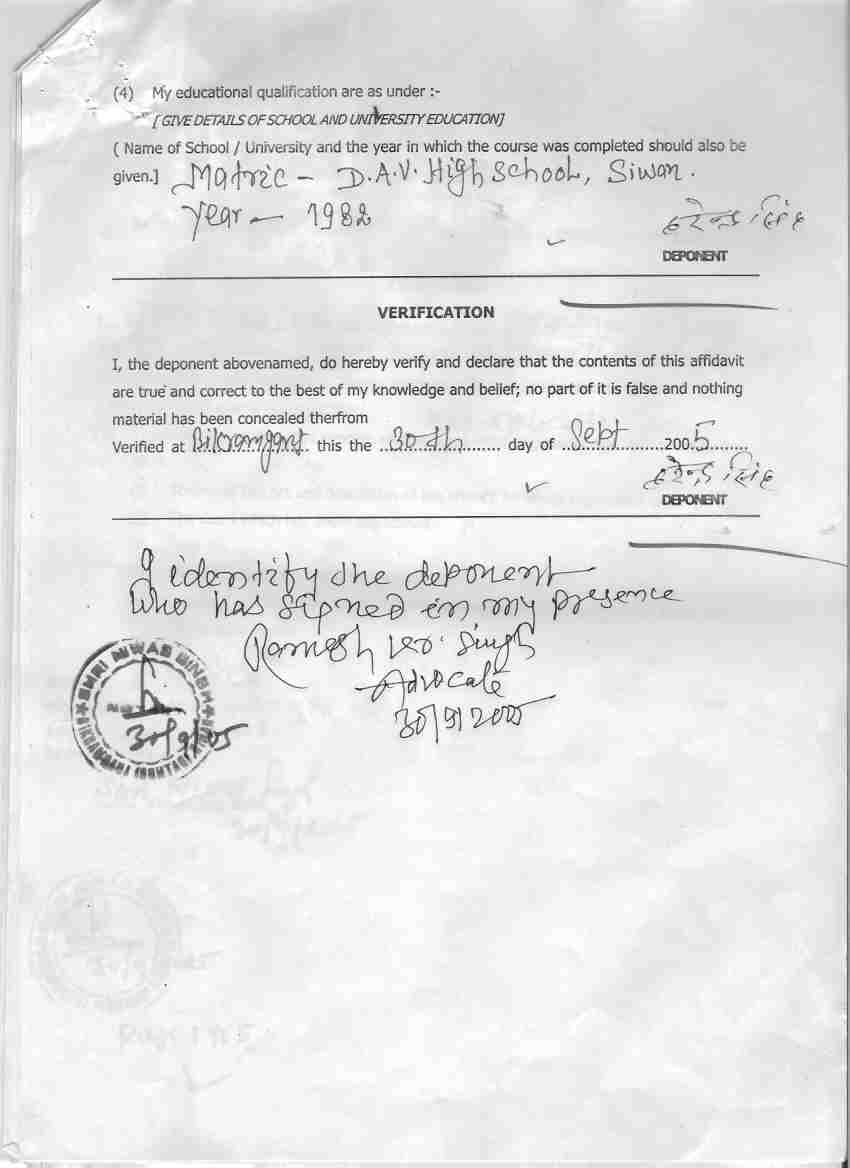 (4) My educational qualification are as under :-
[ GIVE DETAILS OF SCHOOL AND UNIVERSITY EDUCATION]
( Name of School / University and the year in which the course was completed should also be
given.] Matric - D.A.V. High School, Siwan.
Year - 1982
सिंह
DEPONENT
VERIFICATION
I, the deponent abovenamed, do hereby verify and declare that the contents of this affidavit
are true and correct to the best of my knowledge and belief; no part of it is false and nothing
material has been concealed therfrom
Verified at Bikramganj this the 30th day of Sept 2005
सिंह
DEPONENT
I identify the deponent
Who has signed in my presence
Ramesh Kr. Singh
Advocate
30/9/2005
SHRI NIWAS SINGH
30/9/05